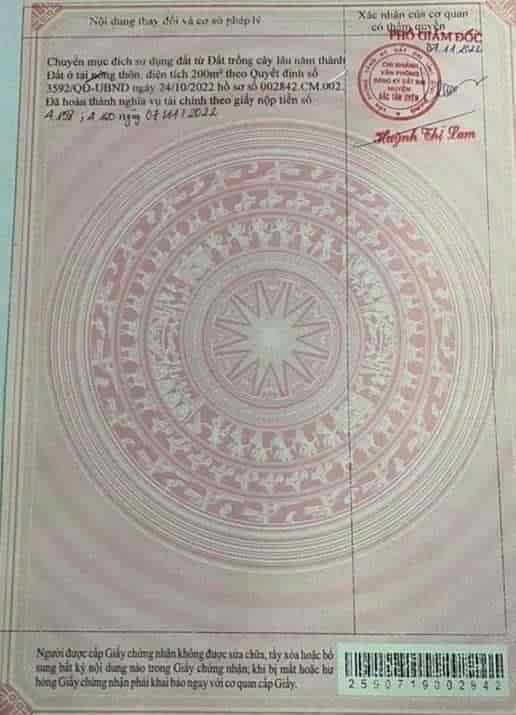 Nội dung thay đổi và cơ sở pháp lý
Xác nhận của cơ quan
có thẩm quyền
PHÓ GIÁM ĐỐC
07.11.2022
Chuyển mục đích sử dụng đất từ Đất trồng cây lâu năm thành
Đất ở tại nông thôn, diện tích 200m² theo Quyết định số
3592/QĐ-UBND ngày 24/10/2022 hồ sơ số 002842.CM.002.
Đã hoàn thành nghĩa vụ tài chính theo giấy nộp tiền số
ngày 07/11/2022
CHI NHÁNH
VĂN PHÒNG
ĐĂNG KÝ ĐẤT ĐAI
HUYỆN
BẮC TÂN UYÊN
Huỳnh Thị Lam
Người được cấp Giấy chứng nhận không được sửa chữa, tẩy xóa hoặc bổ
sung bất kỳ nội dung nào trong Giấy chứng nhận; khi bị mất hoặc hư
hỏng Giấy chứng nhận phải khai báo ngay với cơ quan cấp Giấy.
2590719002842